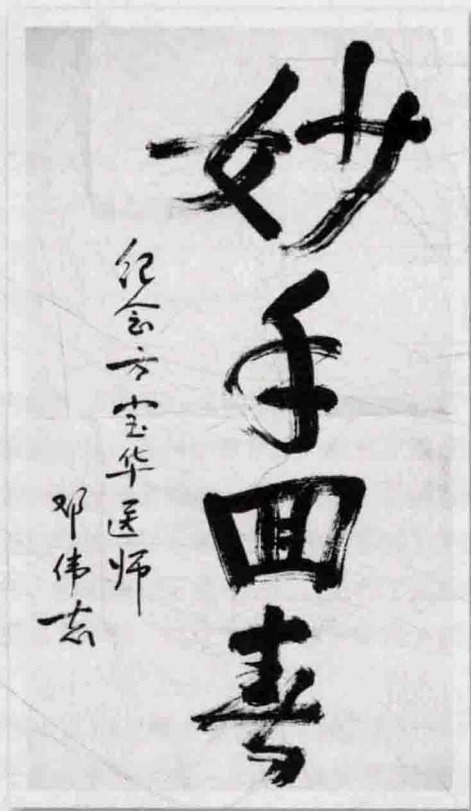 妙手回春
纪念方宝华医师
邓伟志